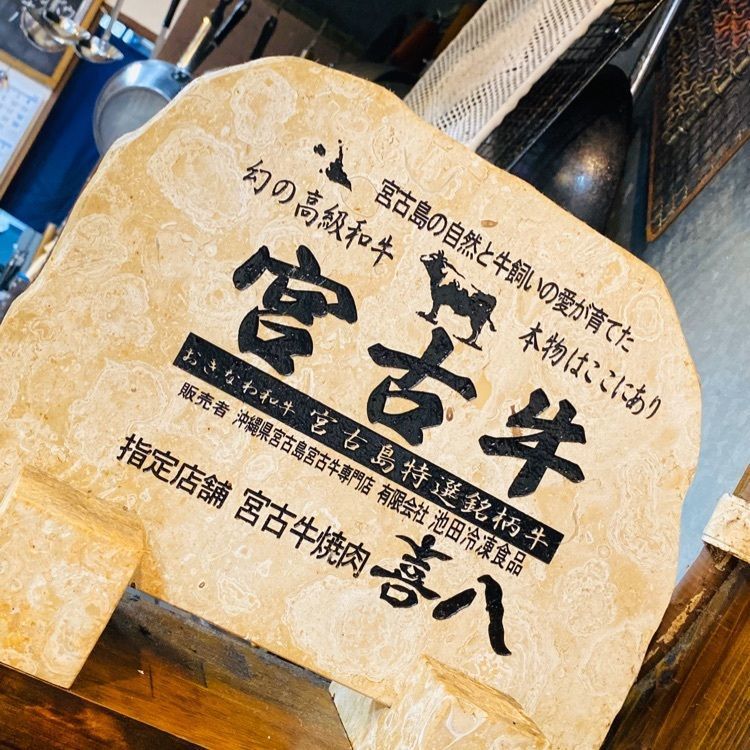 宮古島の自然と牛飼いの愛が育てた
幻の高級和牛
本物はここにあり
宮古牛
おきなわ和牛 宮古島特選銘柄牛
販売者 沖縄県宮古島宮古牛専門店 有限会社 池田冷凍食品
指定店舗 宮古牛焼肉 喜八